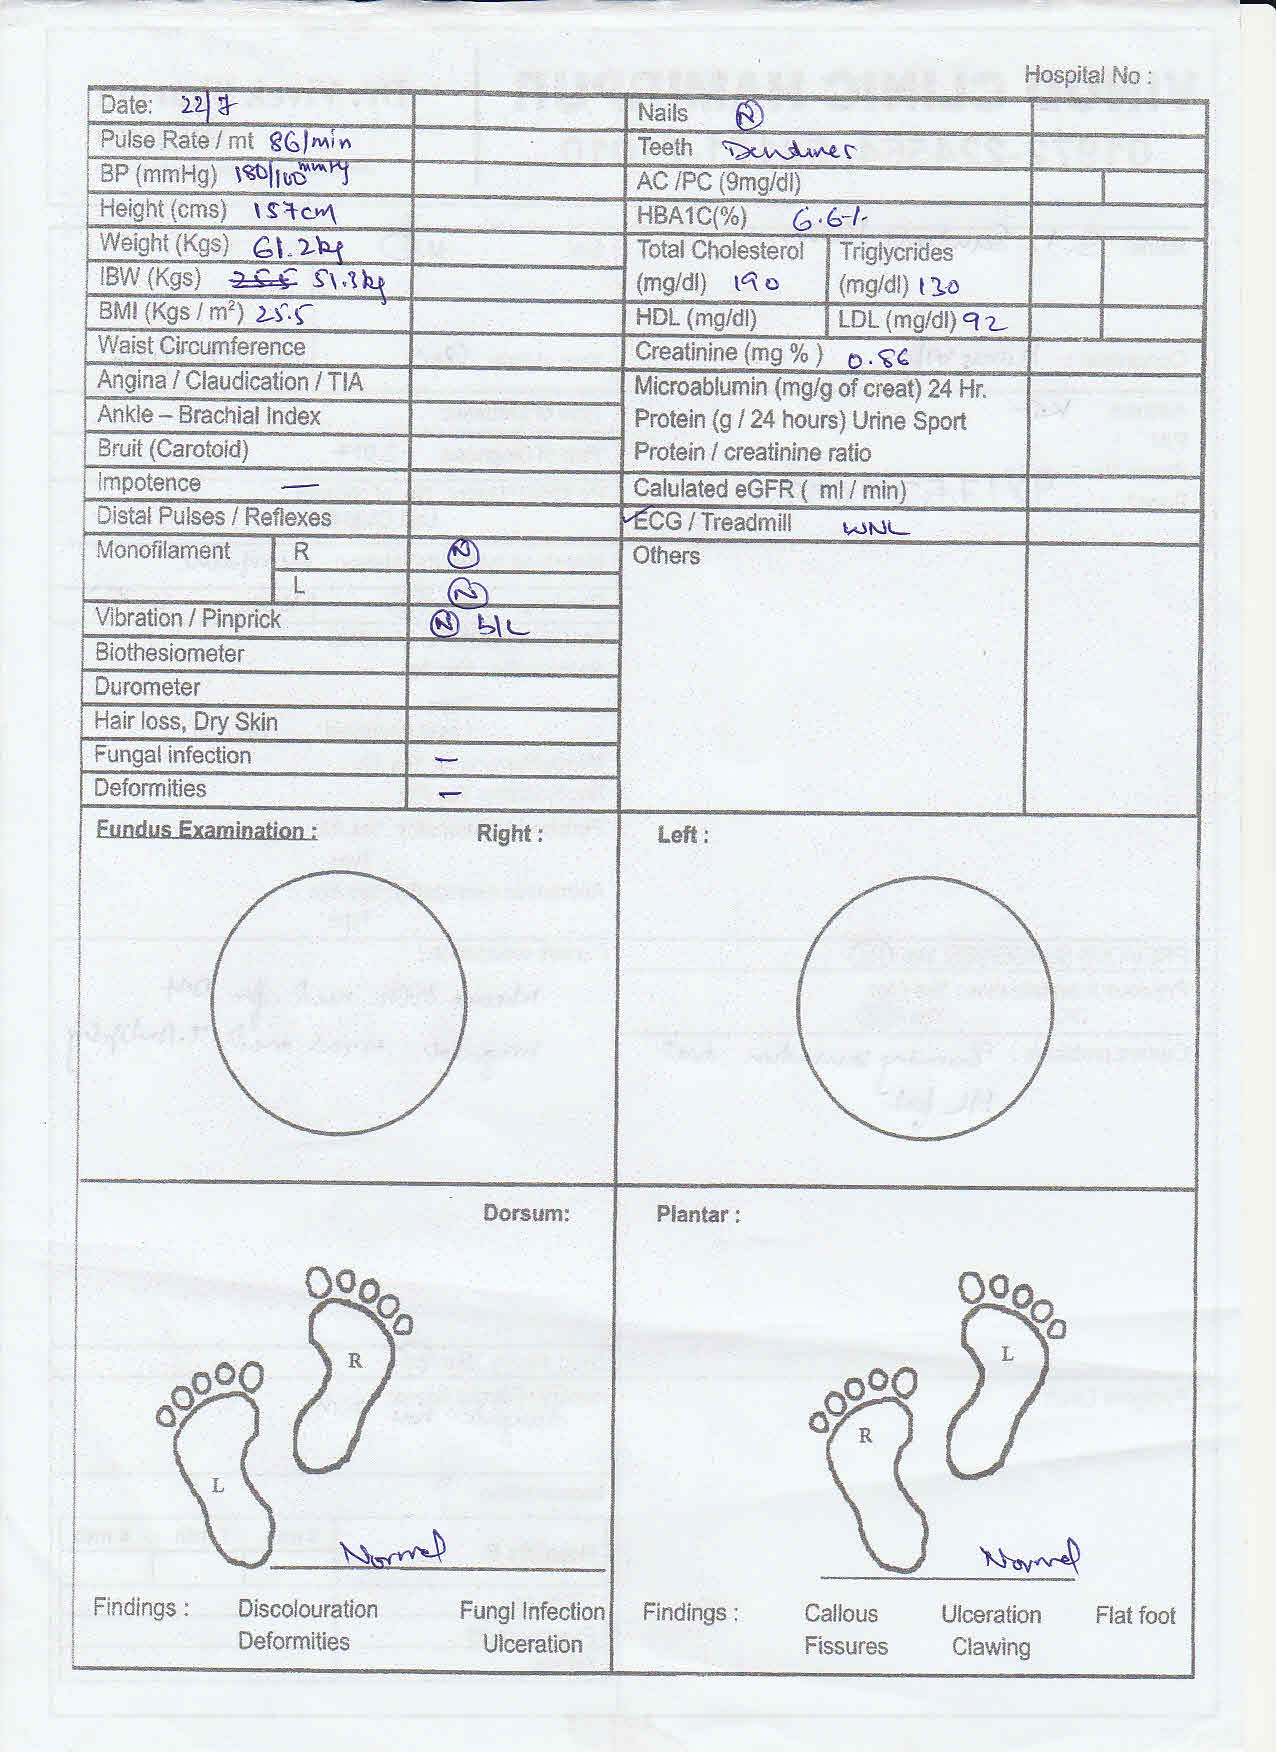 Hospital No :
Date: 22/7
Pulse Rate / mt 86/min
BP (mmHg) 180/100 mmHg
Height (cms) 157cm
Weight (Kgs) 61.2kg
IBW (Kgs) 51.3kg
BMI (Kgs / m²) 25.5
Waist Circumference
Angina / Claudication / TIA
Ankle – Brachial Index
Bruit (Carotoid)
Impotence —
Distal Pulses / Reflexes
Monofilament R N
L N
Vibration / Pinprick N b/L
Biothesiometer
Durometer
Hair loss, Dry Skin
Fungal infection –
Deformities –
Nails N
Teeth
AC /PC (9mg/dl)
HBA1C(%) 6.6%
Total Cholesterol
(mg/dl) 190
Triglycrides
(mg/dl) 130
HDL (mg/dl)
LDL (mg/dl) 92
Creatinine (mg % ) 0.86
Microablumin (mg/g of creat) 24 Hr.
Protein (g / 24 hours) Urine Sport
Protein / creatinine ratio
Calulated eGFR ( ml / min)
✓ECG / Treadmill WNL
Others
Fundus Examination : Right :
Left :
Dorsum:
R
L
Normal
Findings : Discolouration Fungl Infection
Deformities Ulceration
Plantar :
L
R
Normal
Findings : Callous Ulceration Flat foot
Fissures Clawing